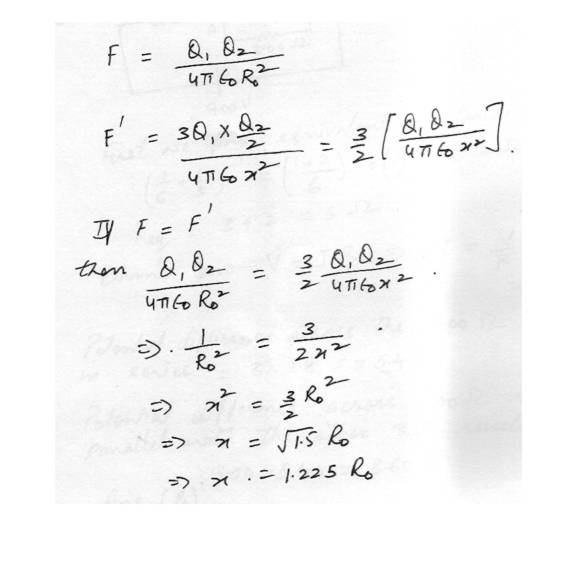 F = Q₁ Q₂ / 4π ϵ₀ R₀²
F' = 3Q₁ × Q₂/2 / 4π ϵ₀ x² = 3/2 [ Q₁ Q₂ / 4π ϵ₀ x² ] .
If F = F'
then Q₁ Q₂ / 4π ϵ₀ R₀² = 3/2 Q₁ Q₂ / 4π ϵ₀ x² .
⇒ . 1 / R₀² = 3 / 2x² .
⇒ x² = 3/2 R₀²
⇒ x = √1.5 R₀
⇒ x . = 1.225 R₀